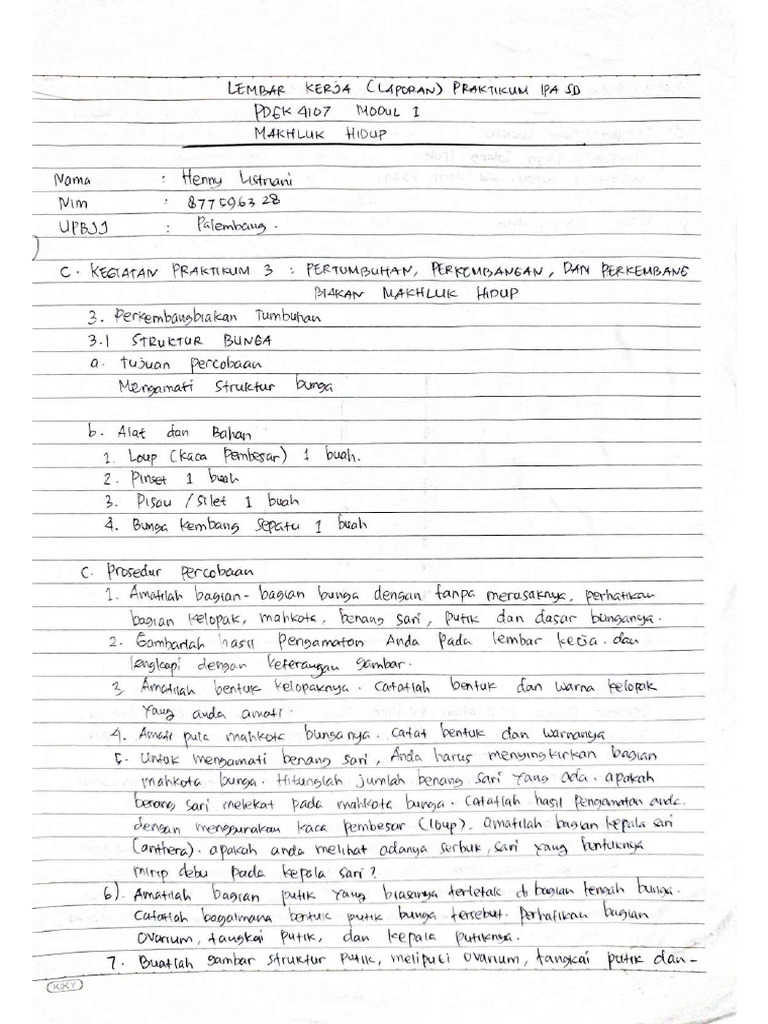 LEMBAR KERJA (LAPORAN) PRAKTIKUM IPA SD
PDGK 4107 MODUL 1
MAKHLUK HIDUP
Nama : Henny Listriani
Nim : 877596328
UPBJJ : Palembang.
C. KEGIATAN PRAKTIKUM 3 : PERTUMBUHAN, PERKEMBANGAN, DAN PERKEMBANG
BIAKAN MAKHLUK HIDUP
3. Perkembangbiakan Tumbuhan
3.1 STRUKTUR BUNGA
a. Tujuan percobaan
Mengamati struktur bunga
b. Alat dan Bahan
1. Loup (kaca pembesar) 1 buah.
2. Pinset 1 buah
3. Pisau / Silet 1 buah
4. Bunga kembang sepatu 1 buah
C. Prosedur percobaan
1. Amatilah bagian-bagian bunga dengan tanpa merusaknya, perhatikan
bagian kelopak, mahkota, benang sari, putik dan dasar bunganya.
2. Gambarlah hasil pengamatan Anda pada lembar kerja. dan
lengkapi dengan keterangan gambar.
3. Amatilah bentuk kelopaknya. catatlah bentuk dan warna kelopak
yang anda amati.
4. Amati pula mahkota bunganya. catat bentuk dan warnanya
5. Untuk mengamati benang sari, Anda harus menyingkirkan bagian
mahkota bunga. Hitunglah jumlah benang sari yang ada. apakah
benang sari melekat pada mahkota bunga. catatlah hasil pengamatan anda.
dengan menggunakan kaca pembesar (loup), amatilah bagian kepala sari
(anthera). apakah anda melihat adanya serbuk, sari yang bentuknya
mirip debu pada kepala sari?
6). Amatilah bagian putik yang biasanya terletak di bagian tengah bunga.
Catatlah bagaimana bentuk putik bunga tersebut. perhatikan bagian
ovarium, tangkai putik, dan kepala putiknya.
7. Buatlah gambar struktur putik, meliputi ovarium, tangkai putik dan-
KIKY